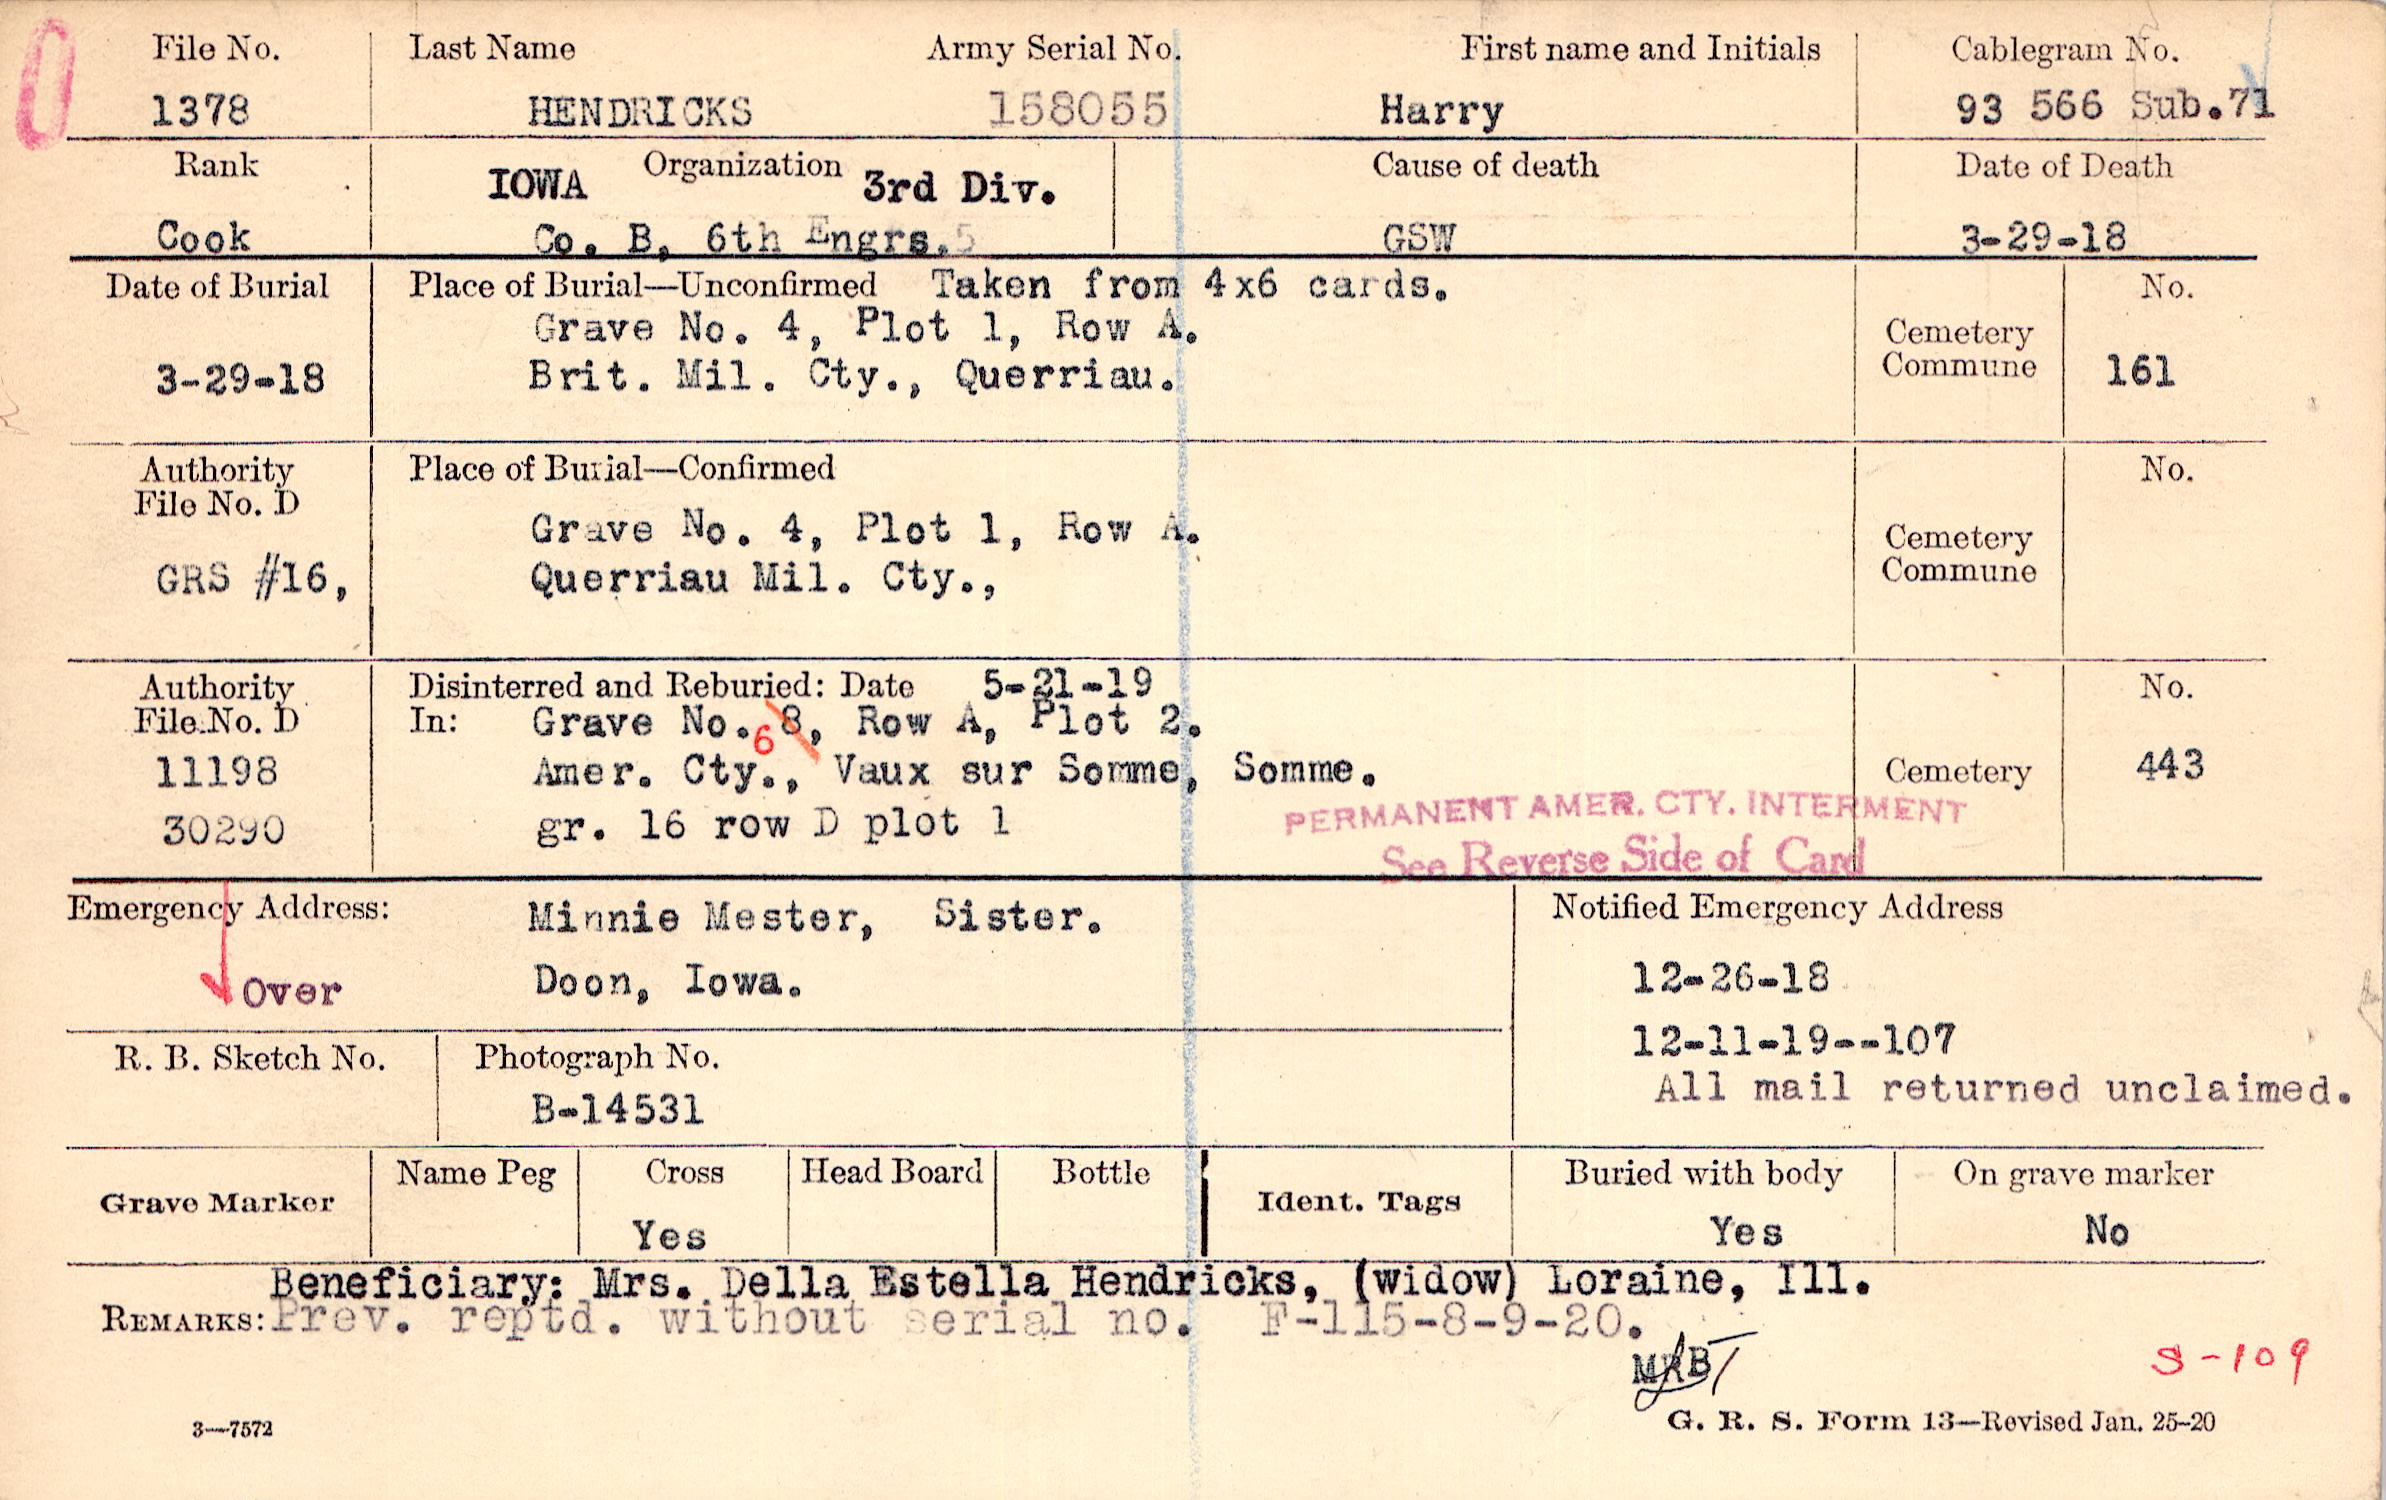 File No. Last Name Army Serial No. First name and Initials Cablegram No.
1378 HENDRICKS 158055 Harry 93 566 Sub.71
Rank Organization Cause of death Date of Death
IOWA 3rd Div.
Cook Co. B, 6th Engrs.5 GSW 3-29-18
Date of Burial Place of Burial—Unconfirmed Taken from 4x6 cards. No.
Grave No. 4, Plot 1, Row A.
Cemetery
3-29-18 Brit. Mil. Cty., Querriau. Commune 161
Authority Place of Burial—Confirmed No.
File No. D
Grave No. 4, Plot 1, Row A. Cemetery
GRS #16, Querriau Mil. Cty., Commune
Authority Disinterred and Reburied: Date 5-21-19 No.
File No. D In: Grave No. 8, Row A, Plot 2.
6
11198 Amer. Cty., Vaux sur Somme, Somme. Cemetery 443
PERMANENT AMER. CTY. INTERMENT
30290 gr. 16 row D plot 1
See Reverse Side of Card
Emergency Address: Minnie Mester, Sister. Notified Emergency Address
Over Doon, Iowa. 12-26-18
12-11-19--107
R. B. Sketch No. Photograph No.
All mail returned unclaimed.
B-14531
Grave Marker Name Peg Cross Head Board Bottle Ident. Tags Buried with body On grave marker
Yes Yes No
Beneficiary: Mrs. Della Estella Hendricks, (widow) Loraine, Ill.
REMARKS: Prev. reptd. without serial no. F-115-8-9-20.
MRB
S-109
3—7572 G. R. S. Form 13—Revised Jan. 25-20